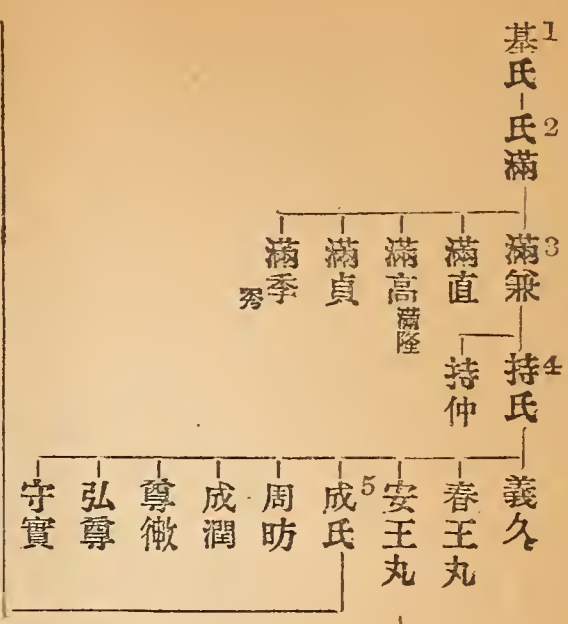 基氏 1
氏滿 2
滿兼 3
滿直
滿高 滿隆
滿貞
滿季 秀
持氏 4
持仲
義久
春王丸
安王丸
成氏 5
周昉
成潤
尊㣲
弘尊
守實